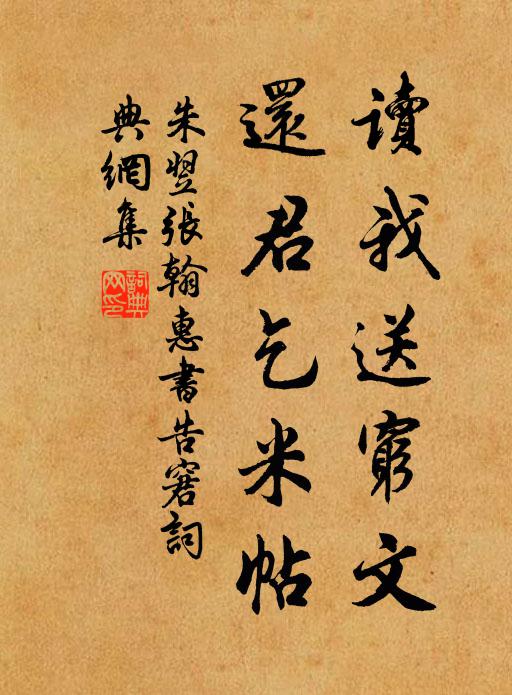 讀我送窮文
還君乞米帖
朱翌張翰惠書告窘詞
典網集
詞典網印